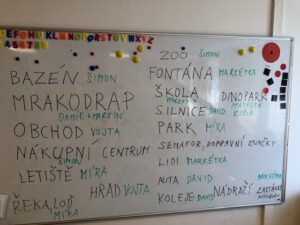 ABCDEFGHIJKLMNOPQRSTUVWXYZ
ZOO ŠIMON
BAZÉN ŠIMON
FONTÁNA MARKÉTKA
MRAKODRAP
DAMIÉ MARTIN
ŠKOLA
MARKÉTKA
DINOPARK
SILNICE DAVID KUBA
OBCHOD VOJTA
PARK MÍRA
NÁKUPNÍ CENTRUM
ŠIMON
SEMAFOR, DOPRAVNÍ ZNAČKY
LETIŠTĚ MÍRA
LIDI MARKÉTKA
HRAD VOJTA
AUTA DAVID
MARKÉTKA
ŘEKA, LOĎ
MÍRA
KOLEJE DAVID
NÁDRAŽÍ